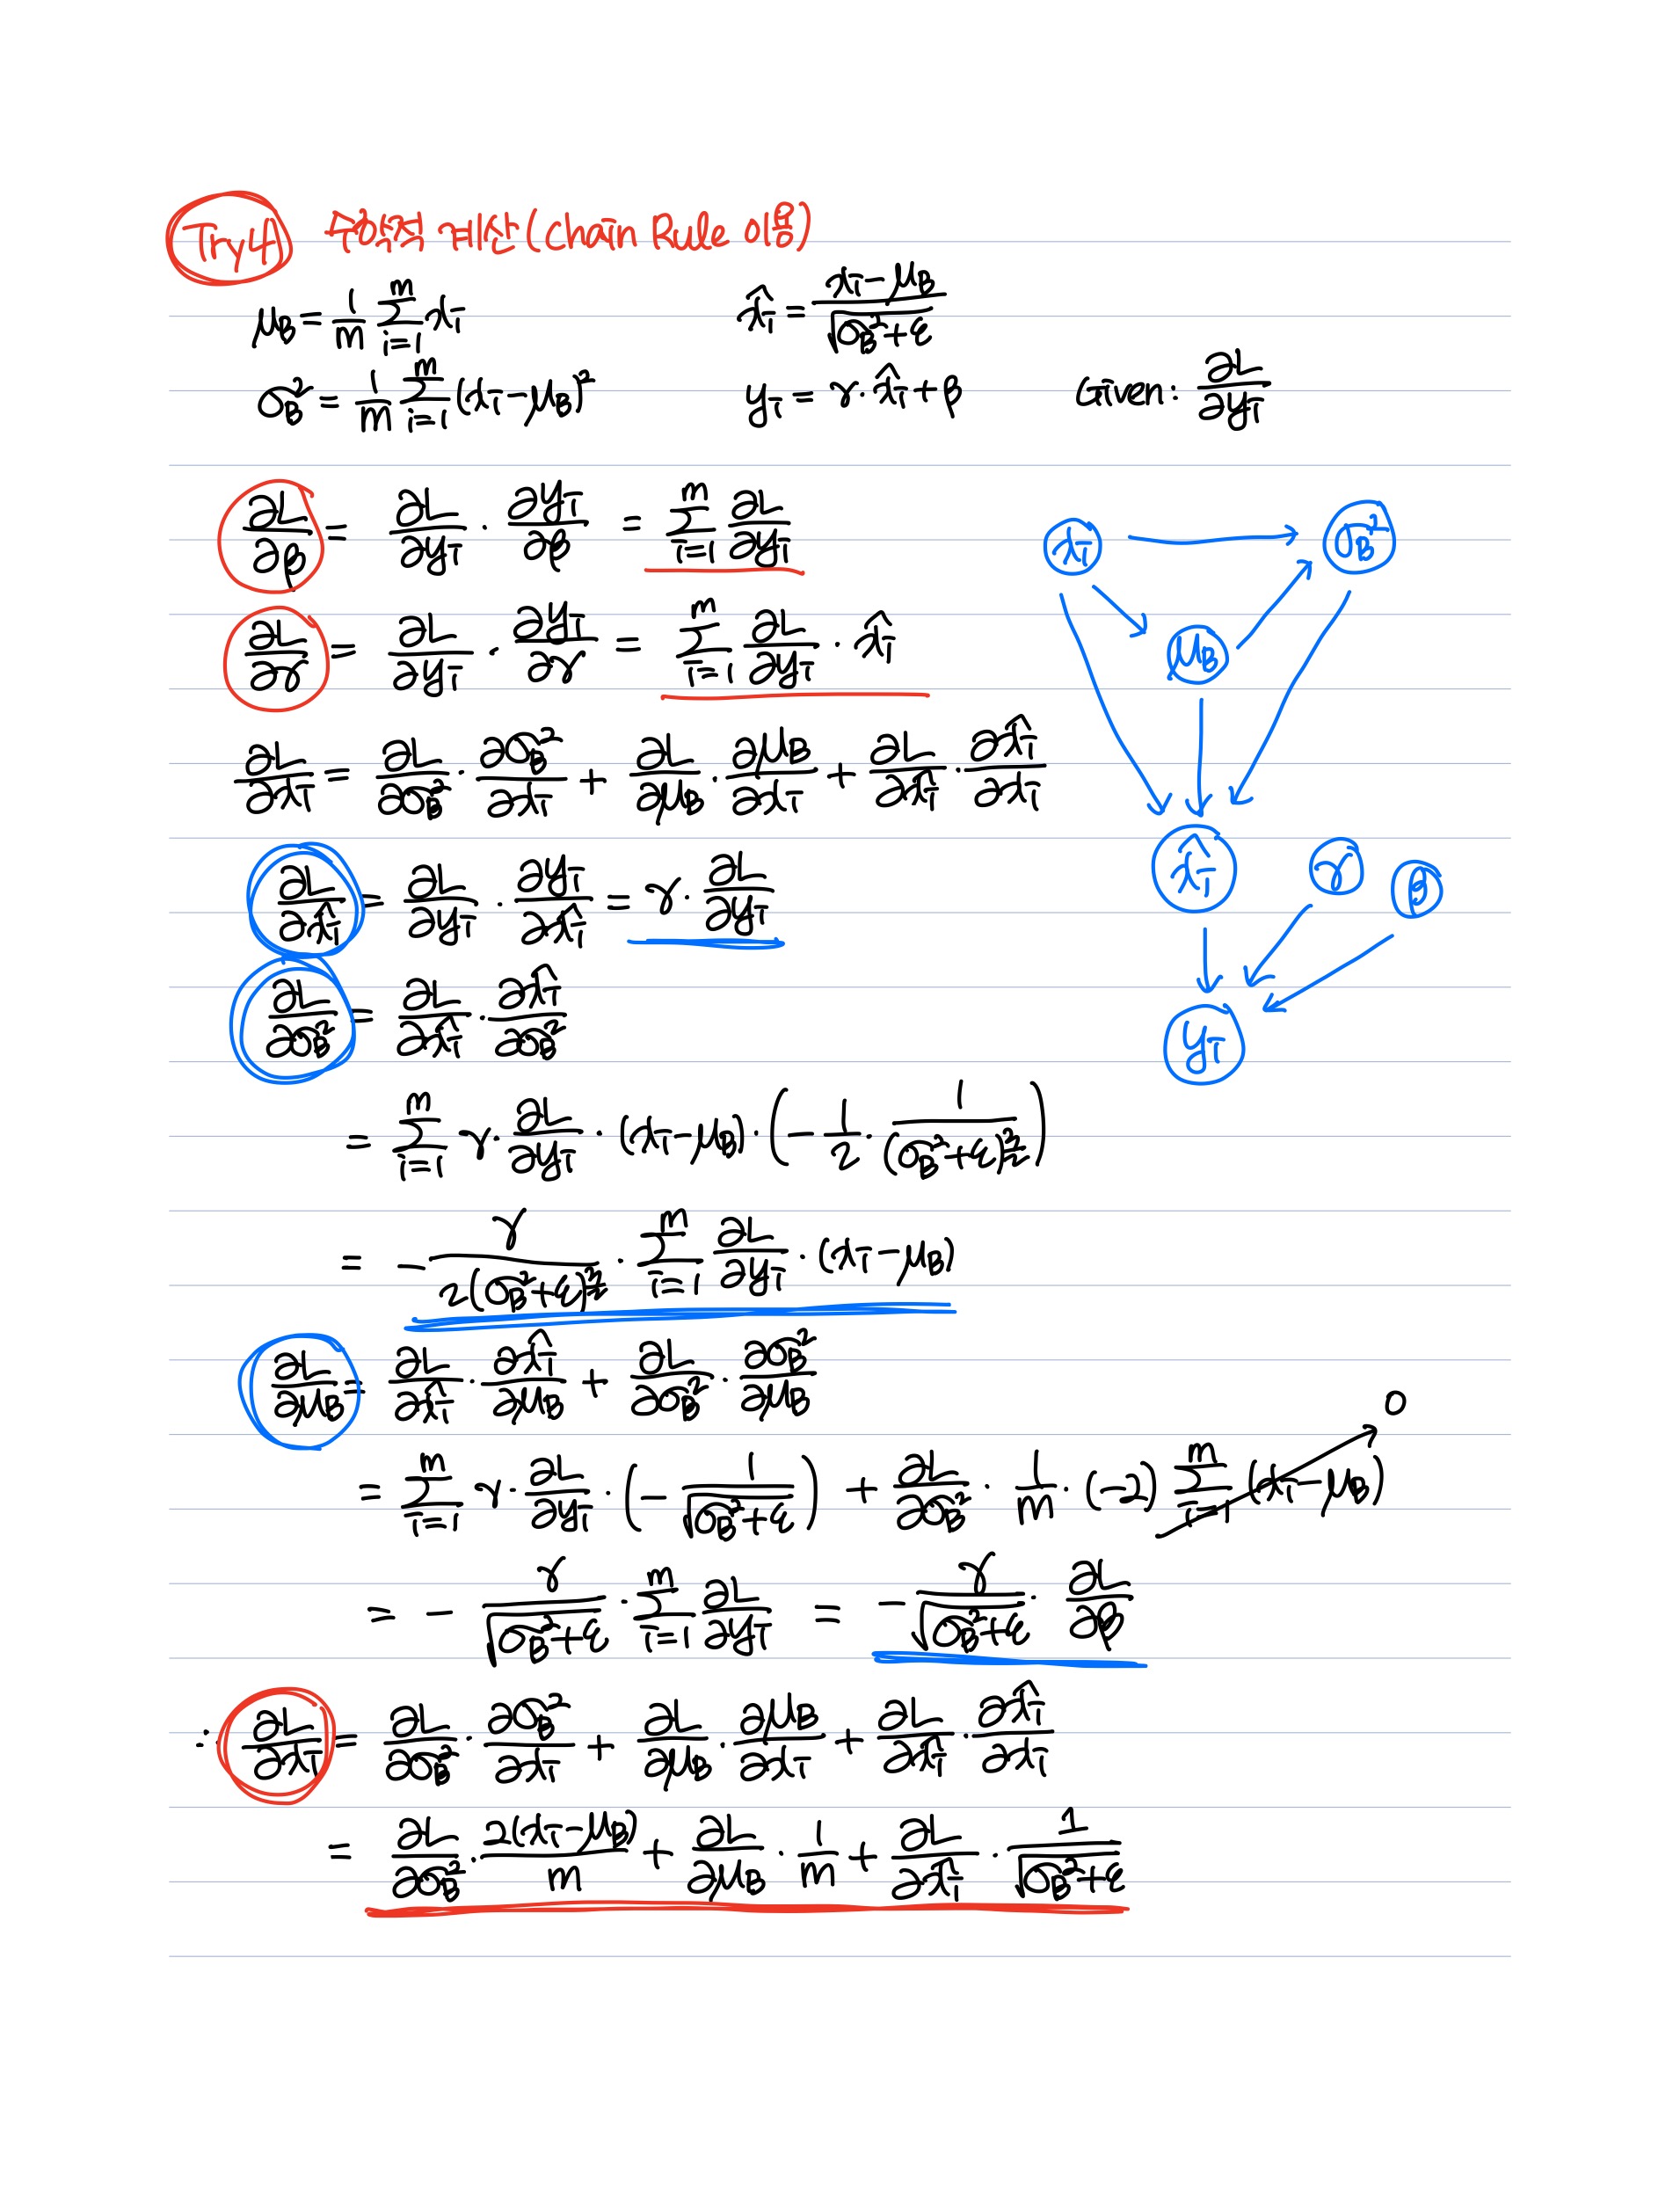 Try4 수학적 계산(Chain Rule 이용)
μ_B = 1/m Σ_{i=1}^{m} x_i    x̂_i = (x_i - μ_B)/√(σ_B² + ε)
σ_B² = 1/m Σ_{i=1}^{m} (x_i - μ_B)²    y_i = γ · x̂_i + β    Given: ∂L/∂y_i
∂L/∂β = ∂L/∂y_i · ∂y_i/∂β = Σ_{i=1}^{m} ∂L/∂y_i
∂L/∂γ = ∂L/∂y_i · ∂y_i/∂γ = Σ_{i=1}^{m} ∂L/∂y_i · x̂_i
∂L/∂x_i = ∂L/∂σ_B² · ∂σ_B²/∂x_i + ∂L/∂μ_B · ∂μ_B/∂x_i + ∂L/∂x̂_i · ∂x̂_i/∂x_i
∂L/∂x̂_i = ∂L/∂y_i · ∂y_i/∂x̂_i = γ · ∂L/∂y_i
∂L/∂σ_B² = ∂L/∂x̂_i · ∂x̂_i/∂σ_B²
= Σ_{i=1}^{m} γ · ∂L/∂y_i · (x_i - μ_B) · (- 1/2 · 1/(σ_B² + ε)^{3/2})
= - γ/(2(σ_B² + ε)^{3/2}) · Σ_{i=1}^{m} ∂L/∂y_i · (x_i - μ_B)
∂L/∂μ_B = ∂L/∂x̂_i · ∂x̂_i/∂μ_B + ∂L/∂σ_B² · ∂σ_B²/∂μ_B
= Σ_{i=1}^{m} γ · ∂L/∂y_i · (- 1/√(σ_B² + ε)) + ∂L/∂σ_B² · 1/m · (-2) Σ_{i=1}^{m} (x_i - μ_B) 0
= - γ/√(σ_B² + ε) · Σ_{i=1}^{m} ∂L/∂y_i = - γ/√(σ_B² + ε) · ∂L/∂β
∴ ∂L/∂x_i = ∂L/∂σ_B² · ∂σ_B²/∂x_i + ∂L/∂μ_B · ∂μ_B/∂x_i + ∂L/∂x̂_i · ∂x̂_i/∂x_i
= ∂L/∂σ_B² · 2(x_i - μ_B)/m + ∂L/∂μ_B · 1/m + ∂L/∂x̂_i · 1/√(σ_B² + ε)
x_i σ_B²
μ_B
x̂_i γ β
y_i